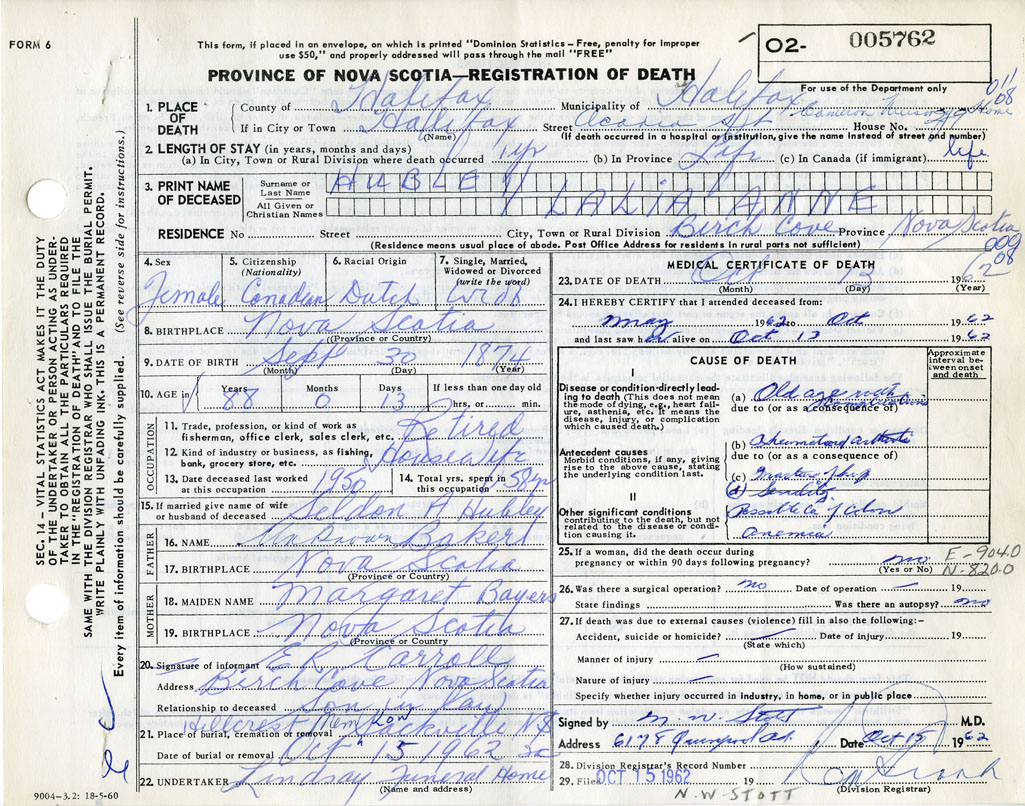 FORM 6
This form, if placed in an envelope, on which is printed "Dominion Statistics – Free, penalty for improper
use $50," and properly addressed will pass through the mail "FREE"
O2- 005762
For use of the Department only
PROVINCE OF NOVA SCOTIA—REGISTRATION OF DEATH
SEC. 14 — VITAL STATISTICS ACT MAKES IT THE DUTY
OF THE UNDERTAKER OR PERSON ACTING AS UNDER-
TAKER TO OBTAIN ALL THE PARTICULARS REQUIRED
IN THE "REGISTRATION OF DEATH" AND TO FILE THE
SAME WITH THE DIVISION REGISTRAR WHO SHALL ISSUE THE BURIAL PERMIT.
WRITE PLAINLY WITH UNFADING INK. THIS IS A PERMANENT RECORD.
Every item of information should be carefully supplied. (See reverse side for instructions.)
1. PLACE OF DEATH
County of Halifax Municipality of Halifax
011 08
If in City or Town Halifax Street Acadia St Cameron Nursing Home House No.
(Name) (If death occurred in a hospital or institution, give the name instead of street and number)
2. LENGTH OF STAY (in years, months and days)
(a) In City, Town or Rural Division where death occurred 1 yr (b) In Province Life (c) In Canada (if immigrant) life
3. PRINT NAME OF DECEASED
Surname or Last Name HUBLEY
All Given or Christian Names LALIA ANNE
RESIDENCE No Street City, Town or Rural Division Birch Cove Province Nova Scotia
(Residence means usual place of abode. Post Office Address for residents in rural parts not sufficient)
009 08
4. Sex 5. Citizenship (Nationality) 6. Racial Origin 7. Single, Married, Widowed or Divorced (write the word)
Female Canadian Dutch Wid
8. BIRTHPLACE Nova Scotia
(Province or Country)
9. DATE OF BIRTH Sept 30 1874
(Month) (Day) (Year)
10. AGE in Years 88 Months 0 Days 13 If less than one day old
hrs, or min.
OCCUPATION
11. Trade, profession, or kind of work as fisherman, office clerk, sales clerk, etc. Retired
12. Kind of industry or business, as fishing, bank, grocery store, etc. Housewife
13. Date deceased last worked at this occupation 1950 14. Total yrs. spent in this occupation 58 yr
15. If married give name of wife or husband of deceased Seldon A Hubley
FATHER
16. NAME Unknown Bakers
17. BIRTHPLACE Nova Scotia
(Province or Country)
MOTHER
18. MAIDEN NAME Margaret Bayers
19. BIRTHPLACE Nova Scotia
(Province or Country)
20. Signature of informant E R Carroll
Address Birch Cove Nova Scotia
Relationship to deceased Son in Law
21. Place of burial, cremation or removal Hillcrest Mem Sackville N.S
Date of burial or removal Oct 15 1962
22. UNDERTAKER Lindsay Funeral Home
(Name and address)
9004–3.2: 18-5-60
MEDICAL CERTIFICATE OF DEATH
23. DATE OF DEATH Oct 13 1962
(Month) (Day) (Year)
24. I HEREBY CERTIFY that I attended deceased from:
May 1962 to Oct 1962
and last saw her alive on Oct 13 1962
CAUSE OF DEATH
Approximate interval between onset and death
I
Disease or condition directly leading to death (This does not mean the mode of dying, e.g., heart failure, asthenia, etc. It means the disease, injury, or complication which caused death.)
(a) Old age with
due to (or as a consequence of)
Antecedent causes
Morbid conditions, if any, giving rise to the above cause, stating the underlying condition last.
(b) Rheumatoid arthritis
due to (or as a consequence of)
(c) Fracture of hip
(d) Senility
II
Other significant conditions
contributing to the death, but not related to the disease or condition causing it.
Possible Ca of Colon
Anemia
25. If a woman, did the death occur during pregnancy or within 90 days following pregnancy? no
(Yes or No)
E-904.0
N-820.0
26. Was there a surgical operation? no Date of operation — 19
State findings Was there an autopsy? no
27. If death was due to external causes (violence) fill in also the following:–
Accident, suicide or homicide? — Date of injury 19
(State which)
Manner of injury —
(How sustained)
Nature of injury —
Specify whether injury occurred in industry, in home, or in public place
Signed by N. W. Stott M.D.
Address 6178 Date Oct 15 1962
28. Division Registrar's Record Number
29. Filed OCT 15 1962 19
(Division Registrar)
N.W-STOTT